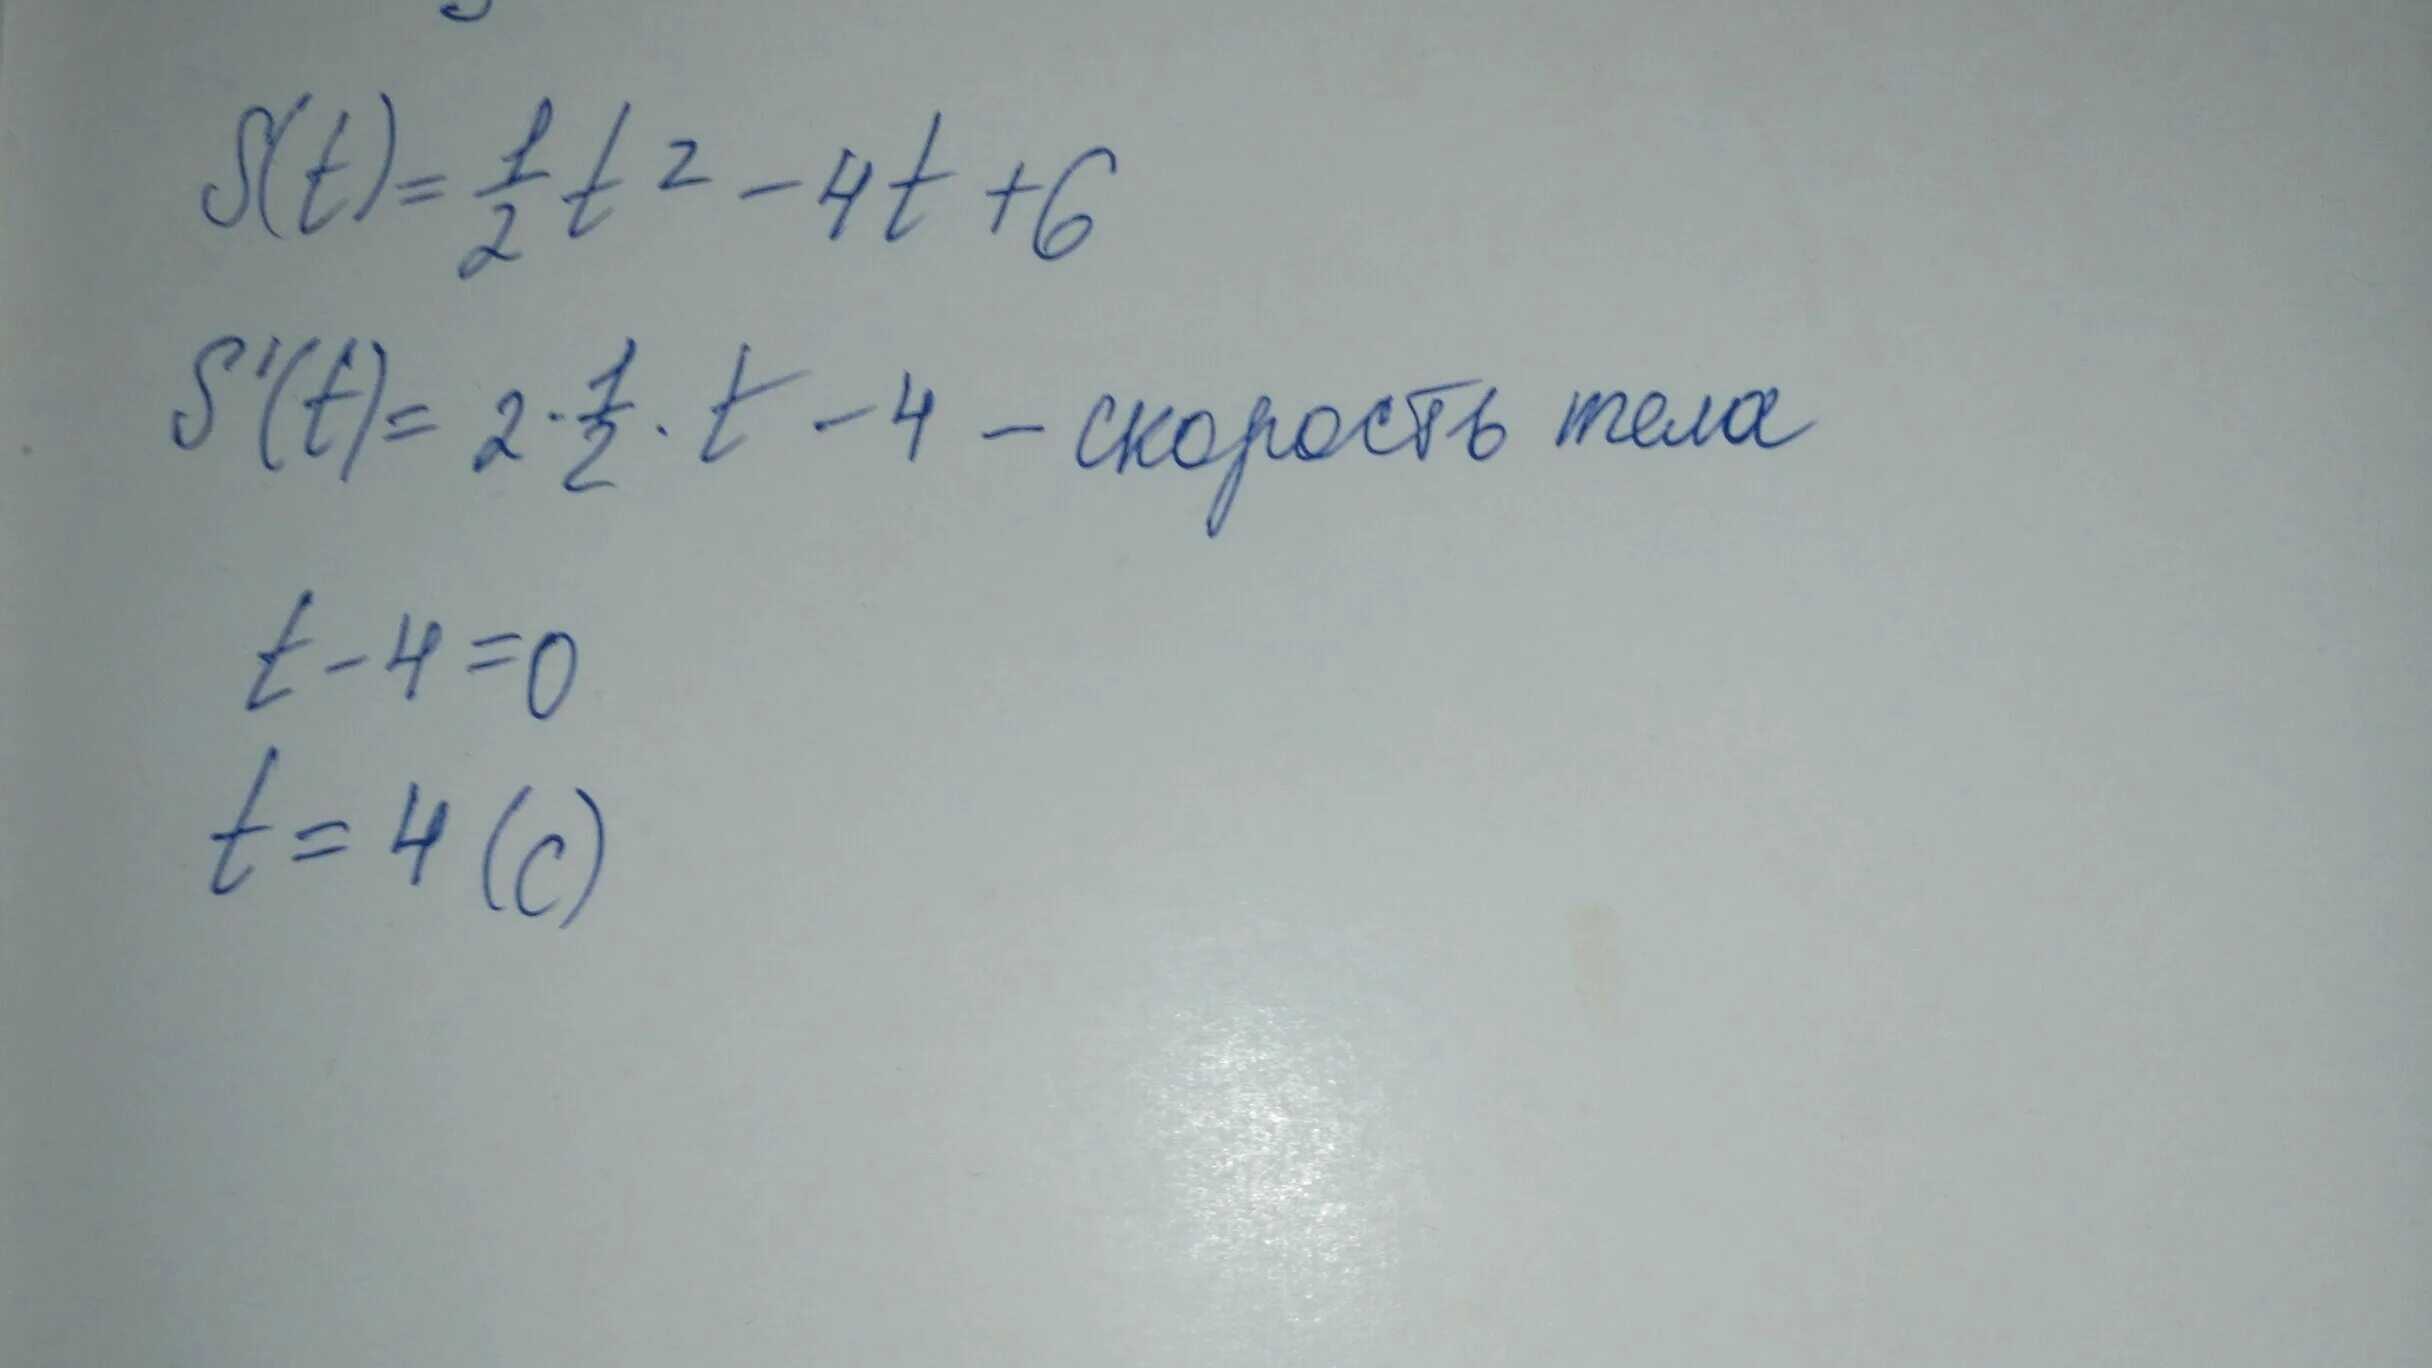 S(t) = 1/2 t² - 4t + 6
S'(t) = 2 · 1/2 · t - 4 - скорость тела
t - 4 = 0
t = 4 (с)